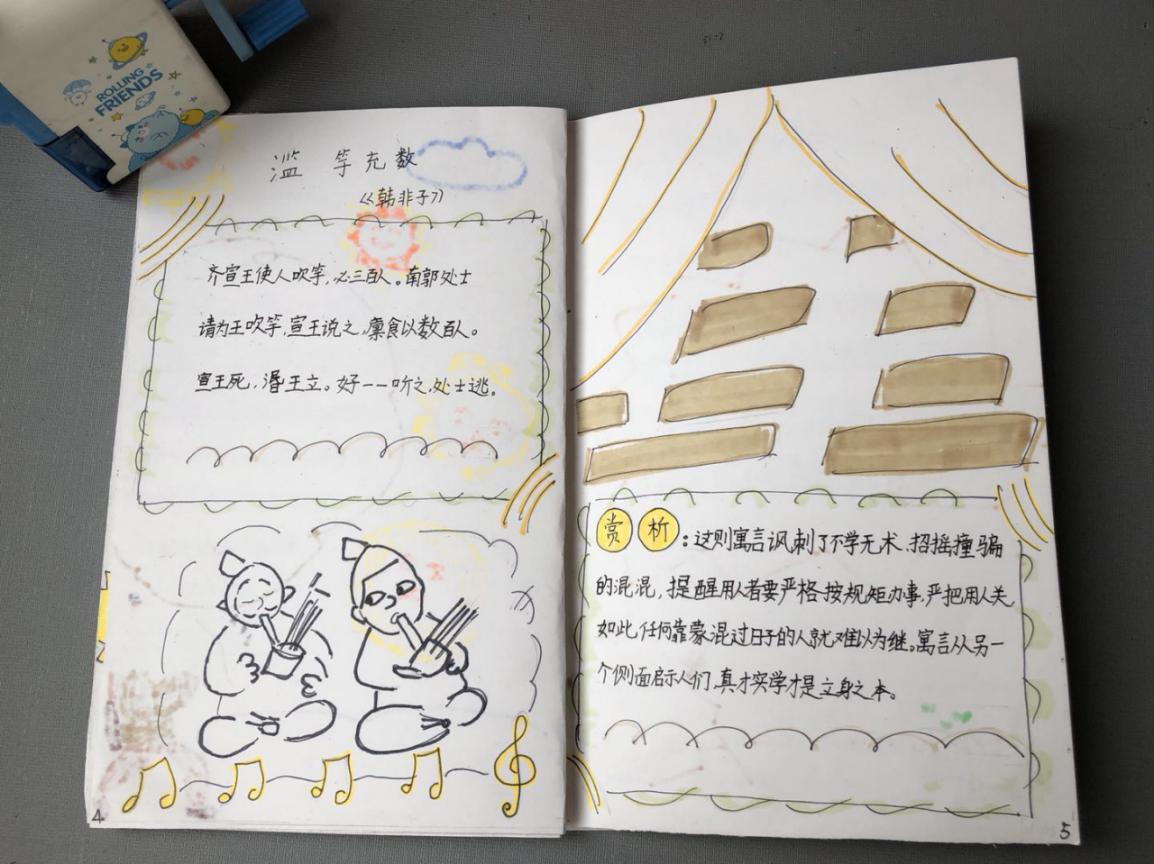 ROLLING
FRIENDS
滥 竽充数
《韩非子》
齐宣王使人吹竽,必三百人。南郭处士
请为王吹竽,宣王说之,廪食以数百人。
宣王死,湣王立。好一一听之,处士逃。
4
赏析:这则寓言讽刺了不学无术、招摇撞骗
的混混,提醒用人者要严格按规矩办事,严把用人关,
如此,任何靠蒙混过日子的人就难以为继。寓言从另一
个侧面启示人们,真才实学才是立身之本。
5